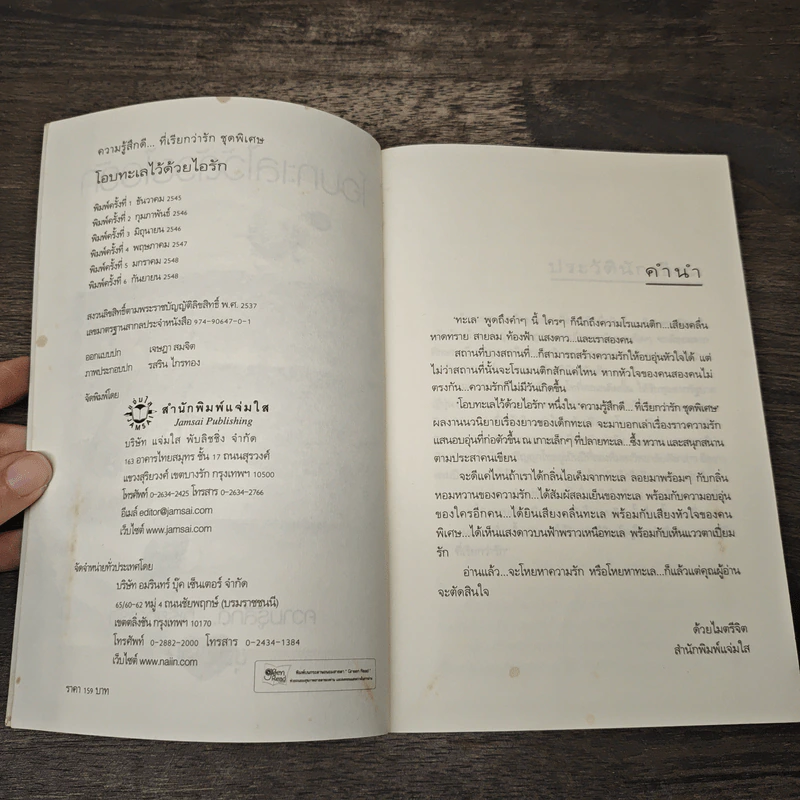 ความรู้สึกดี... ที่เรียกว่ารัก ชุดพิเศษ
โอบทะเลไว้ด้วยไอรัก
พิมพ์ครั้งที่ 1 ธันวาคม 2545
พิมพ์ครั้งที่ 2 กุมภาพันธ์ 2546
พิมพ์ครั้งที่ 3 มิถุนายน 2546
พิมพ์ครั้งที่ 4 พฤษภาคม 2547
พิมพ์ครั้งที่ 5 มกราคม 2548
พิมพ์ครั้งที่ 6 กันยายน 2548
สงวนลิขสิทธิ์ตามพระราชบัญญัติลิขสิทธิ์ พ.ศ. 2537
เลขมาตรฐานสากลประจำหนังสือ 974-90647-0-1
ออกแบบปก เจษฎา สมจิต
ภาพประกอบปก รสริน ไกรทอง
จัดพิมพ์โดย
สำนักพิมพ์แจ่มใส
Jamsai Publishing
บริษัท แจ่มใส พับลิชชิง จำกัด
163 อาคารไทยสมุทร ชั้น 17 ถนนสุรวงศ์
แขวงสุริยวงศ์ เขตบางรัก กรุงเทพฯ 10500
โทรศัพท์ 0-2634-2425 โทรสาร 0-2634-2766
อีเมล์ editor@jamsai.com
เว็บไซต์ www.jamsai.com
จัดจำหน่ายทั่วประเทศโดย
บริษัท อมรินทร์ บุ๊ค เซ็นเตอร์ จำกัด
65/60-62 หมู่ 4 ถนนชัยพฤกษ์ (บรมราชชนนี)
เขตตลิ่งชัน กรุงเทพฯ 10170
โทรศัพท์ 0-2882-2000 โทรสาร 0-2434-1384
เว็บไซต์ www.naiin.com
Green Read
ราคา 159 บาท
คำนำ
'ทะเล' พูดถึงคำๆ นี้ ใครๆ ก็นึกถึงความโรแมนติก...เสียงคลื่น
หาดทราย สายลม ท้องฟ้า แสงดาว...และเราสองคน
สถานที่บางสถานที่...ก็สามารถสร้างความรักให้อบอุ่นหัวใจได้ แต่
ไม่ว่าสถานที่นั้นจะโรแมนติกสักแค่ไหน หากหัวใจของคนสองคนไม่
ตรงกัน...ความรักก็ไม่มีวันเกิดขึ้น
'โอบทะเลไว้ด้วยไอรัก' หนึ่งใน 'ความรู้สึกดี... ที่เรียกว่ารัก ชุดพิเศษ'
ผลงานนวนิยายเรื่องยาวของเด็กทะเล จะมาบอกเล่าเรื่องราวความรัก
แสนอบอุ่นที่ก่อตัวขึ้น ณ เกาะเล็กๆ ที่ปลายทะเล...ซึ้ง หวาน และสนุกสนาน
ตามประสาคนเขียน
จะดีแค่ไหนถ้าเราได้กลิ่นไอเค็มจากทะเล ลอยมาพร้อมๆ กับกลิ่น
หอมหวานของความรัก...ได้สัมผัสลมเย็นของทะเล พร้อมกับความอบอุ่น
ของใครอีกคน...ได้ยินเสียงคลื่นทะเล พร้อมกับเสียงหัวใจของคน
พิเศษ...ได้เห็นแสงดาวบนฟ้าพราวเหนือทะเล พร้อมกับเห็นแววตาเปี่ยม
รัก
อ่านแล้ว...จะโหยหาความรัก หรือโหยหาทะเล...ก็แล้วแต่คุณผู้อ่าน
จะตัดสินใจ
ด้วยไมตรีจิต
สำนักพิมพ์แจ่มใส